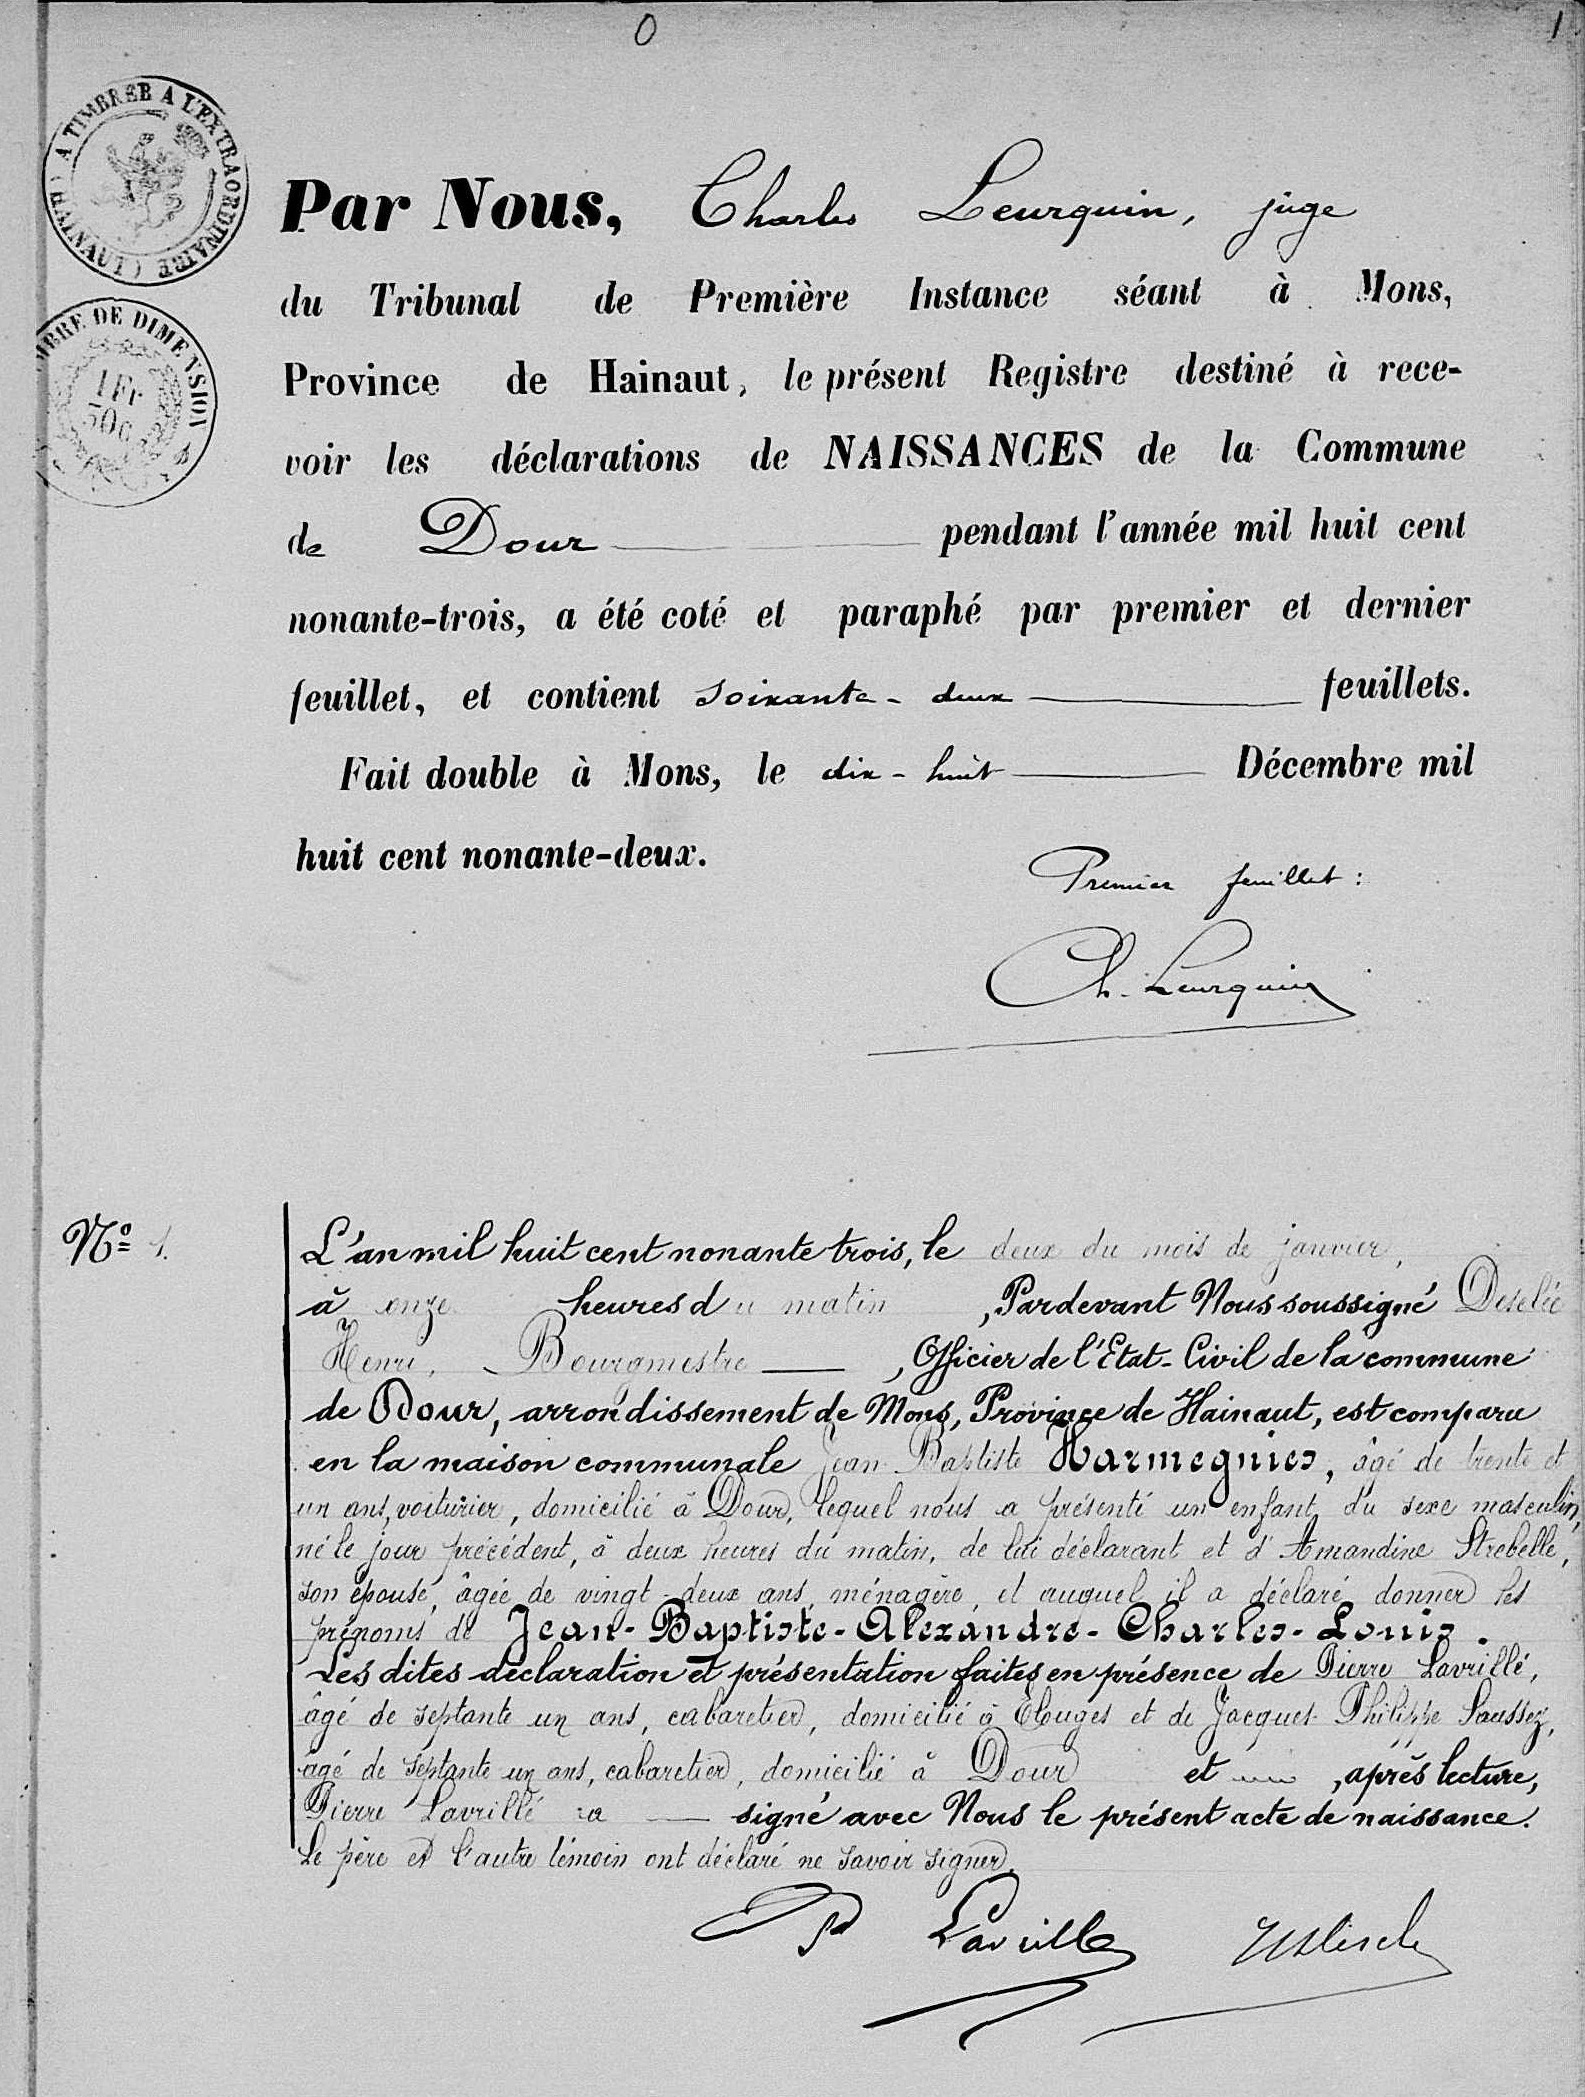 0
1
A TIMBRER A L'EXTRAORDINAIRE (HAINAUT)
MBRE DE DIMENSION
1 Fr
50 c
Par Nous, Charles Leurquin, juge
du Tribunal de Première Instance séant à Mons,
Province de Hainaut, le présent Registre destiné à rece-
voir les déclarations de NAISSANCES de la Commune
de Dour pendant l'année mil huit cent
nonante-trois, a été coté et paraphé par premier et dernier
feuillet, et contient soixante-deux feuillets.
Fait double à Mons, le dix-huit Décembre mil
huit cent nonante-deux.
Premier feuillet :
Ch. Leurquin
Nº 1.
L'an mil huit cent nonante trois, le deux du mois de janvier,
à onze heures du matin, Pardevant Nous soussigné Deselie
Henri, Bourgmestre, Officier de l'Etat-Civil de la commune
de Dour, arrondissement de Mons, Province de Hainaut, est comparu
en la maison communale Jean-Baptiste Harmegnies, âgé de trente et
un ans, voiturier, domicilié à Dour, lequel nous a présenté un enfant du sexe masculin,
né le jour précédent, à deux heures du matin, de lui déclarant et d'Amandine Strebelle,
son épouse, âgée de vingt-deux ans, ménagère, et auquel il a déclaré donner les
prénoms de Jean-Baptiste-Alexandre-Charles-Louis.
Les dites déclaration et présentation faites en présence de Pierre Lavrillé,
âgé de septante un ans, cabaretier, domicilié à Elouges et de Jacques-Philippe Saussez,
âgé de septante un ans, cabaretier, domicilié à Dour et, après lecture,
Pierre Lavrillé a signé avec Nous le présent acte de naissance.
Le père et l'autre témoin ont déclaré ne savoir signer.
P Lavrille